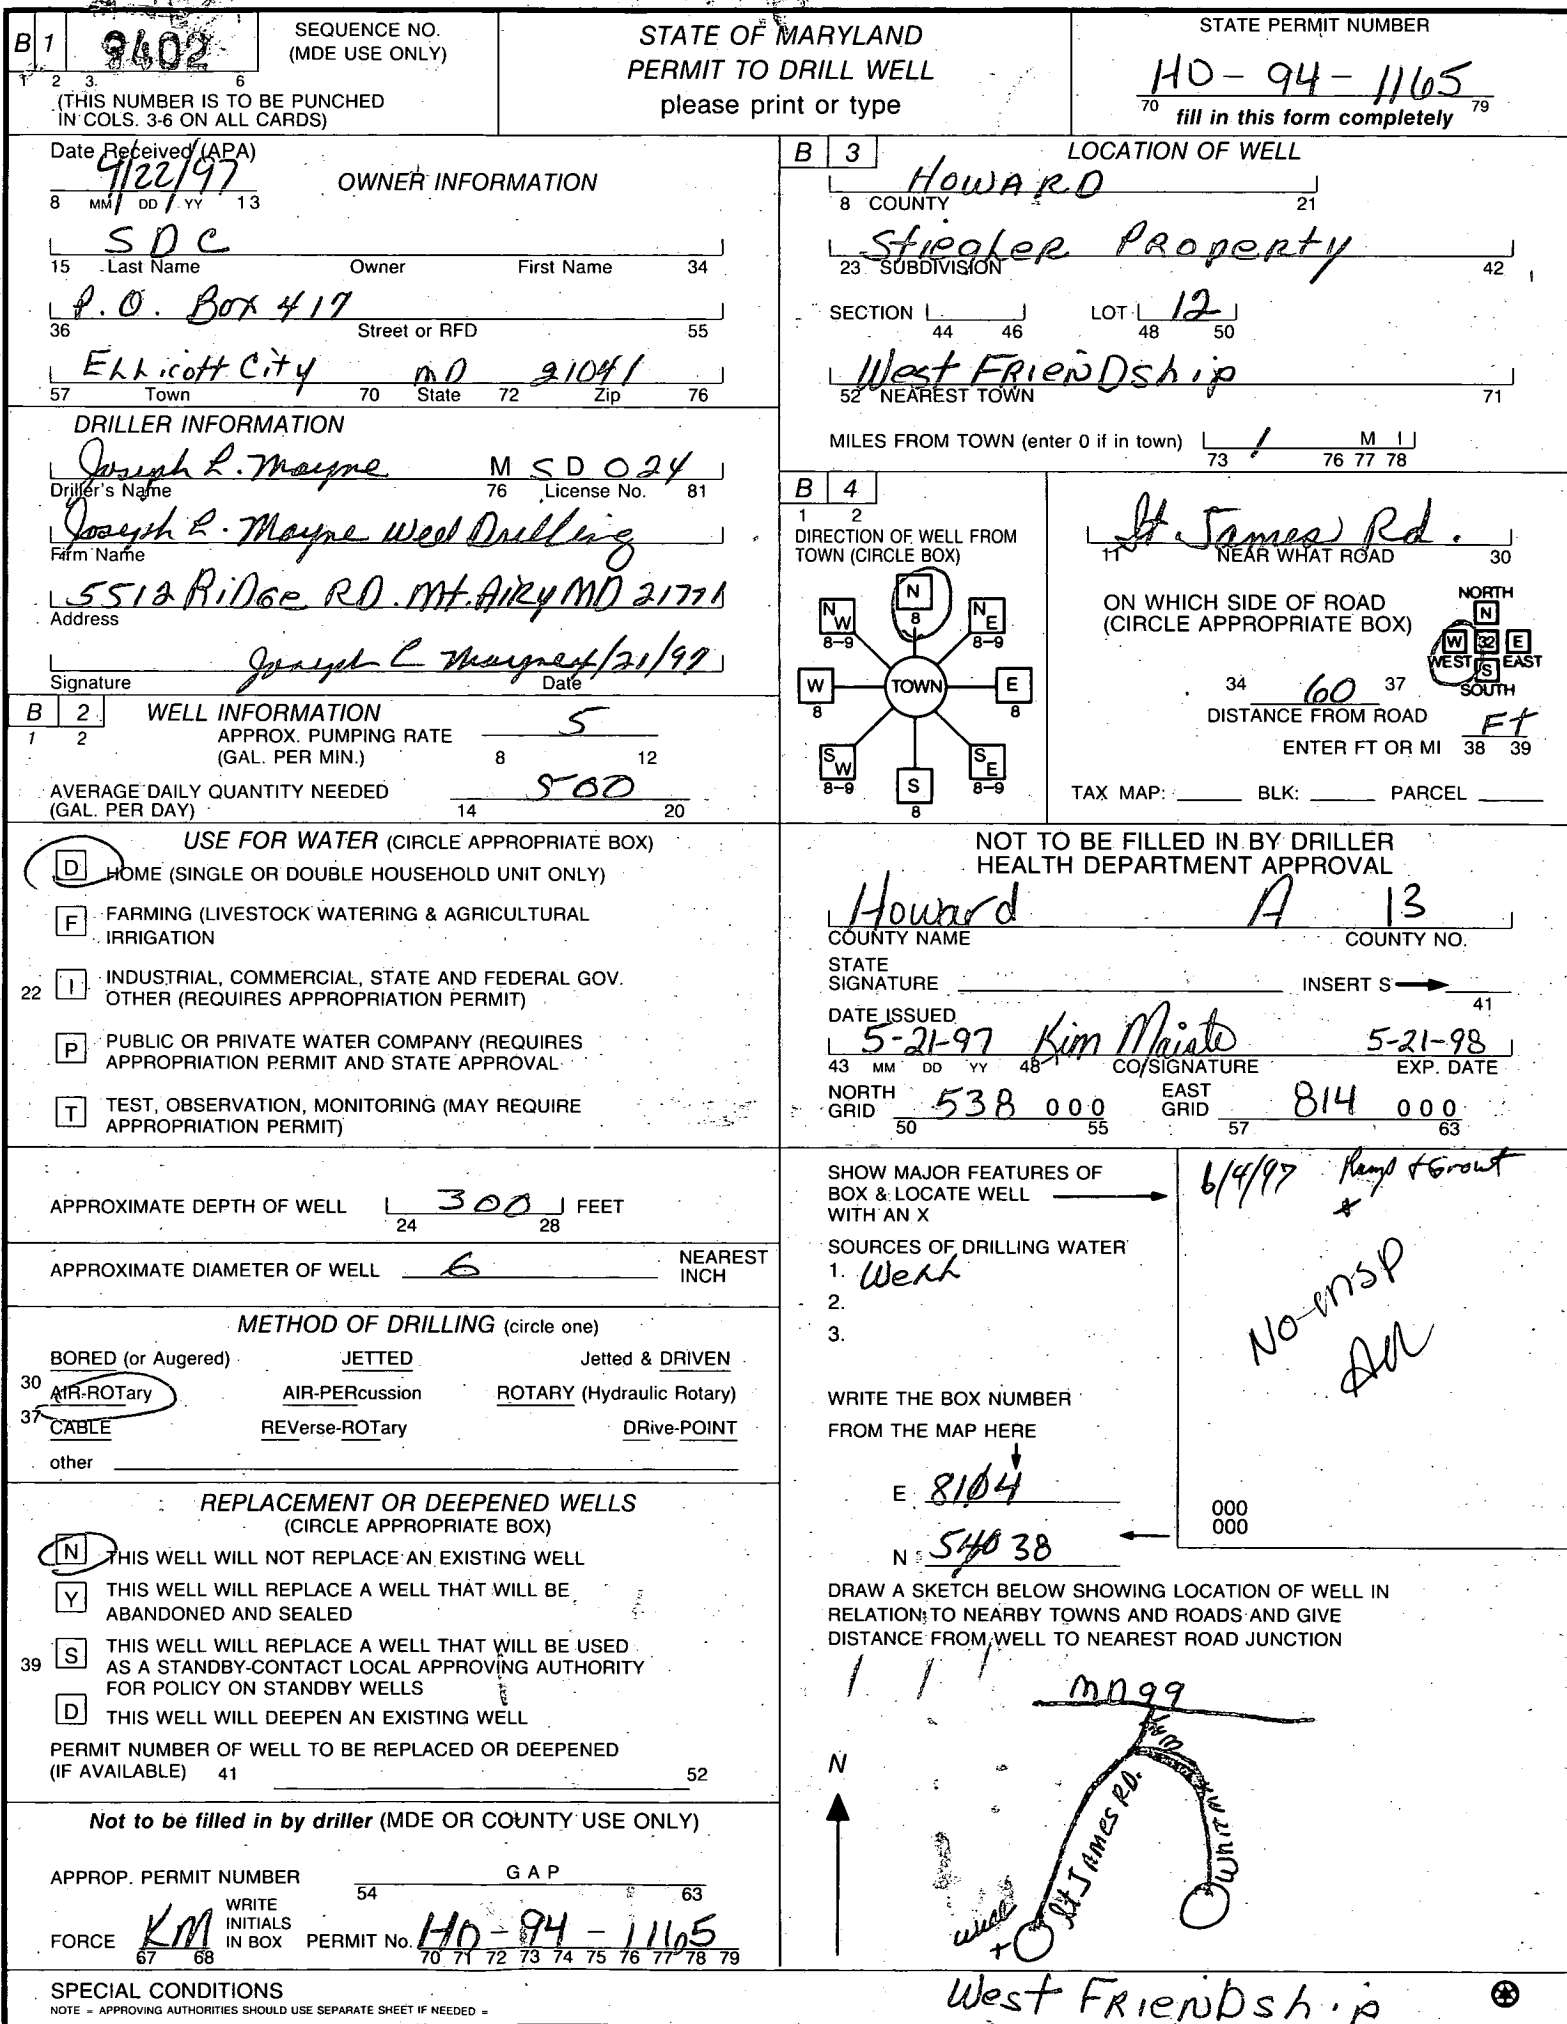 B 1 9402 SEQUENCE NO. (MDE USE ONLY)
1 2 3 6
(THIS NUMBER IS TO BE PUNCHED
IN COLS. 3-6 ON ALL CARDS)
STATE OF MARYLAND
PERMIT TO DRILL WELL
please print or type
STATE PERMIT NUMBER
HO-94-1165
70 fill in this form completely 79
Date Received (APA)
4/22/97 OWNER INFORMATION
8 MM DD YY 13
SDC
15 Last Name Owner First Name 34
P.O. Box 417
36 Street or RFD 55
Ellicott City MD 21041
57 Town 70 State 72 Zip 76
DRILLER INFORMATION
Joseph L. Mayne M SD 024
Driller's Name 76 License No. 81
Joseph L. Mayne Well Drilling
Firm Name
5512 Ridge RD. Mt. Airy MD 21771
Address
Joseph L Mayne 4/21/97
Signature Date
B 2 WELL INFORMATION
1 2 APPROX. PUMPING RATE 5
(GAL. PER MIN.) 8 12
AVERAGE DAILY QUANTITY NEEDED 500
(GAL. PER DAY) 14 20
USE FOR WATER (CIRCLE APPROPRIATE BOX)
D HOME (SINGLE OR DOUBLE HOUSEHOLD UNIT ONLY)
F FARMING (LIVESTOCK WATERING & AGRICULTURAL
IRRIGATION
22 I INDUSTRIAL, COMMERCIAL, STATE AND FEDERAL GOV.
OTHER (REQUIRES APPROPRIATION PERMIT)
P PUBLIC OR PRIVATE WATER COMPANY (REQUIRES
APPROPRIATION PERMIT AND STATE APPROVAL
T TEST, OBSERVATION, MONITORING (MAY REQUIRE
APPROPRIATION PERMIT)
APPROXIMATE DEPTH OF WELL 300 FEET
24 28
APPROXIMATE DIAMETER OF WELL 6 NEAREST
INCH
METHOD OF DRILLING (circle one)
BORED (or Augered) JETTED Jetted & DRIVEN
30 AIR-ROTary AIR-PERcussion ROTARY (Hydraulic Rotary)
37 CABLE REVerse-ROTary DRive-POINT
other
REPLACEMENT OR DEEPENED WELLS
(CIRCLE APPROPRIATE BOX)
N THIS WELL WILL NOT REPLACE AN EXISTING WELL
Y THIS WELL WILL REPLACE A WELL THAT WILL BE
ABANDONED AND SEALED
39 S THIS WELL WILL REPLACE A WELL THAT WILL BE USED
AS A STANDBY-CONTACT LOCAL APPROVING AUTHORITY
FOR POLICY ON STANDBY WELLS
D THIS WELL WILL DEEPEN AN EXISTING WELL
PERMIT NUMBER OF WELL TO BE REPLACED OR DEEPENED
(IF AVAILABLE) 41 52
Not to be filled in by driller (MDE OR COUNTY USE ONLY)
APPROP. PERMIT NUMBER G A P
54 63
FORCE KM WRITE INITIALS IN BOX PERMIT No. HO-94-1165
67 68 70 71 72 73 74 75 76 77 78 79
SPECIAL CONDITIONS
NOTE = APPROVING AUTHORITIES SHOULD USE SEPARATE SHEET IF NEEDED =
B 3 LOCATION OF WELL
HOWARD
8 COUNTY 21
Stiegler Property
23 SUBDIVISION 42
SECTION LOT 12
44 46 48 50
West FRIENDship
52 NEAREST TOWN 71
MILES FROM TOWN (enter 0 if in town) 1 M I
73 76 77 78
B 4
1 2
DIRECTION OF WELL FROM
TOWN (CIRCLE BOX)
N 8
NW 8-9 NE 8-9
W 8 TOWN E 8
SW 8-9 SE 8-9
S 8
St. James Rd.
11 NEAR WHAT ROAD 30
ON WHICH SIDE OF ROAD
(CIRCLE APPROPRIATE BOX)
NORTH
N
W 32 E
WEST S EAST
SOUTH
34 60 37
DISTANCE FROM ROAD Ft
ENTER FT OR MI 38 39
TAX MAP: BLK: PARCEL
NOT TO BE FILLED IN BY DRILLER
HEALTH DEPARTMENT APPROVAL
Howard A 13
COUNTY NAME COUNTY NO.
STATE
SIGNATURE INSERT S
41
DATE ISSUED
5-21-97 Kim Maisto 5-21-98
43 MM DD YY 48 CO/SIGNATURE EXP. DATE
NORTH GRID 538 000 EAST GRID 814 000
50 55 57 63
SHOW MAJOR FEATURES OF
BOX & LOCATE WELL
WITH AN X
SOURCES OF DRILLING WATER
1. Well
2.
3.
6/4/97 & Grout
No insp
WRITE THE BOX NUMBER
FROM THE MAP HERE
E 8104
N 54038
000
000
DRAW A SKETCH BELOW SHOWING LOCATION OF WELL IN
RELATION TO NEARBY TOWNS AND ROADS AND GIVE
DISTANCE FROM WELL TO NEAREST ROAD JUNCTION
MD 99
N
St James RD.
well
+
West FRIENDship